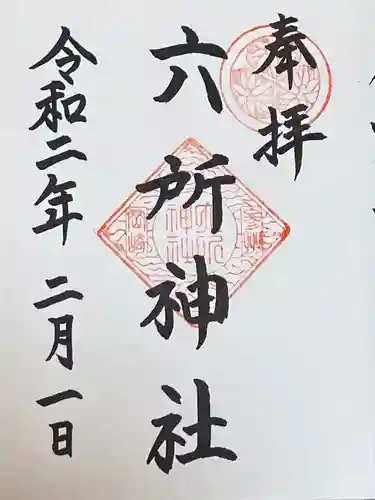 奉拝
六所神社
令和二年 二月一日